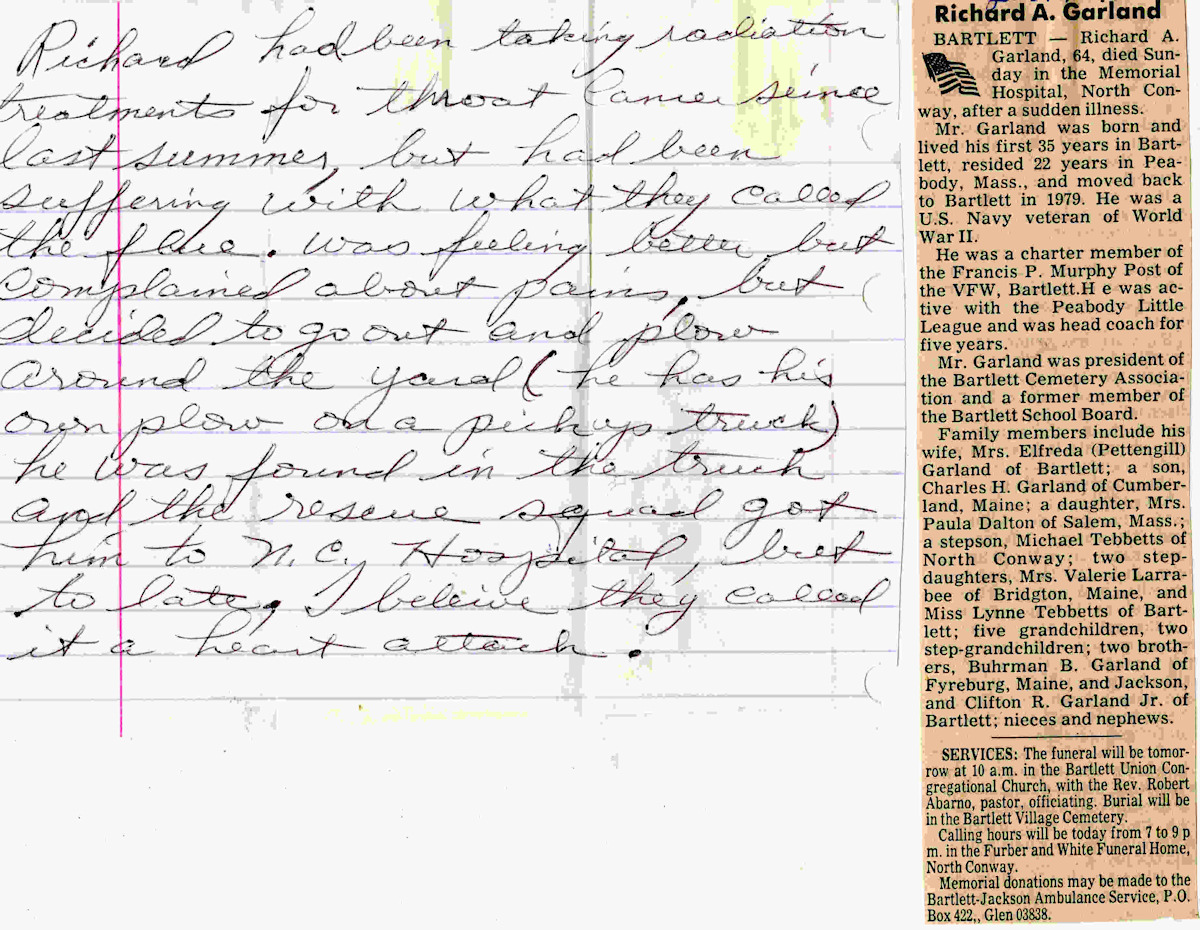 Richard had been taking radiation
treatments for throat Cancer since
last summer, but had been
suffering with what they called
the flue. was feeling better but
complained about pains, but
decided to go out and plow
around the yard (he has his
own plow on a pickup truck)
he was found in the truck
and the rescue squad got
him to N.C. Hospital, but
to late. I beleive they called
it a heart attack.
Richard A. Garland
BARTLETT — Richard A.
Garland, 64, died Sun-
day in the Memorial
Hospital, North Con-
way, after a sudden illness.
Mr. Garland was born and
lived his first 35 years in Bart-
lett, resided 22 years in Pea-
body, Mass., and moved back
to Bartlett in 1979. He was a
U.S. Navy veteran of World
War II.
He was a charter member of
the Francis P. Murphy Post of
the VFW, Bartlett.H e was ac-
tive with the Peabody Little
League and was head coach for
five years.
Mr. Garland was president of
the Bartlett Cemetery Associa-
tion and a former member of
the Bartlett School Board.
Family members include his
wife, Mrs. Elfreda (Pettengill)
Garland of Bartlett; a son,
Charles H. Garland of Cumber-
land, Maine; a daughter, Mrs.
Paula Dalton of Salem, Mass.;
a stepson, Michael Tebbetts of
North Conway; two step-
daughters, Mrs. Valerie Larra-
bee of Bridgton, Maine, and
Miss Lynne Tebbetts of Bart-
lett; five grandchildren, two
step-grandchildren; two broth-
ers, Buhrman B. Garland of
Fyreburg, Maine, and Jackson,
and Clifton R. Garland Jr. of
Bartlett; nieces and nephews.
SERVICES: The funeral will be tomor-
row at 10 a.m. in the Bartlett Union Con-
gregational Church, with the Rev. Robert
Abarno, pastor, officiating. Burial will be
in the Bartlett Village Cemetery.
Calling hours will be today from 7 to 9 p
m. in the Furber and White Funeral Home,
North Conway.
Memorial donations may be made to the
Bartlett-Jackson Ambulance Service, P.O.
Box 422,, Glen 03838.